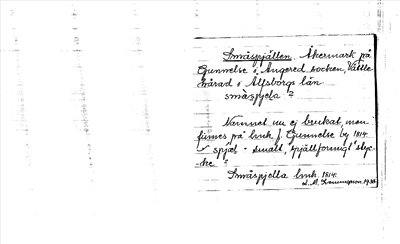 Småspjällen, Åkermark på
Gunnelse i Angered socken, Vättle
härad i Älfsborgs län
småspjela ?
Namnet nu ej brukat, men
finnes på bruk f. Gunnelse by 1814
spjäl - smalt, spjällformigt styc-
-ke ?
Småspjella bruk. 1814.
1936